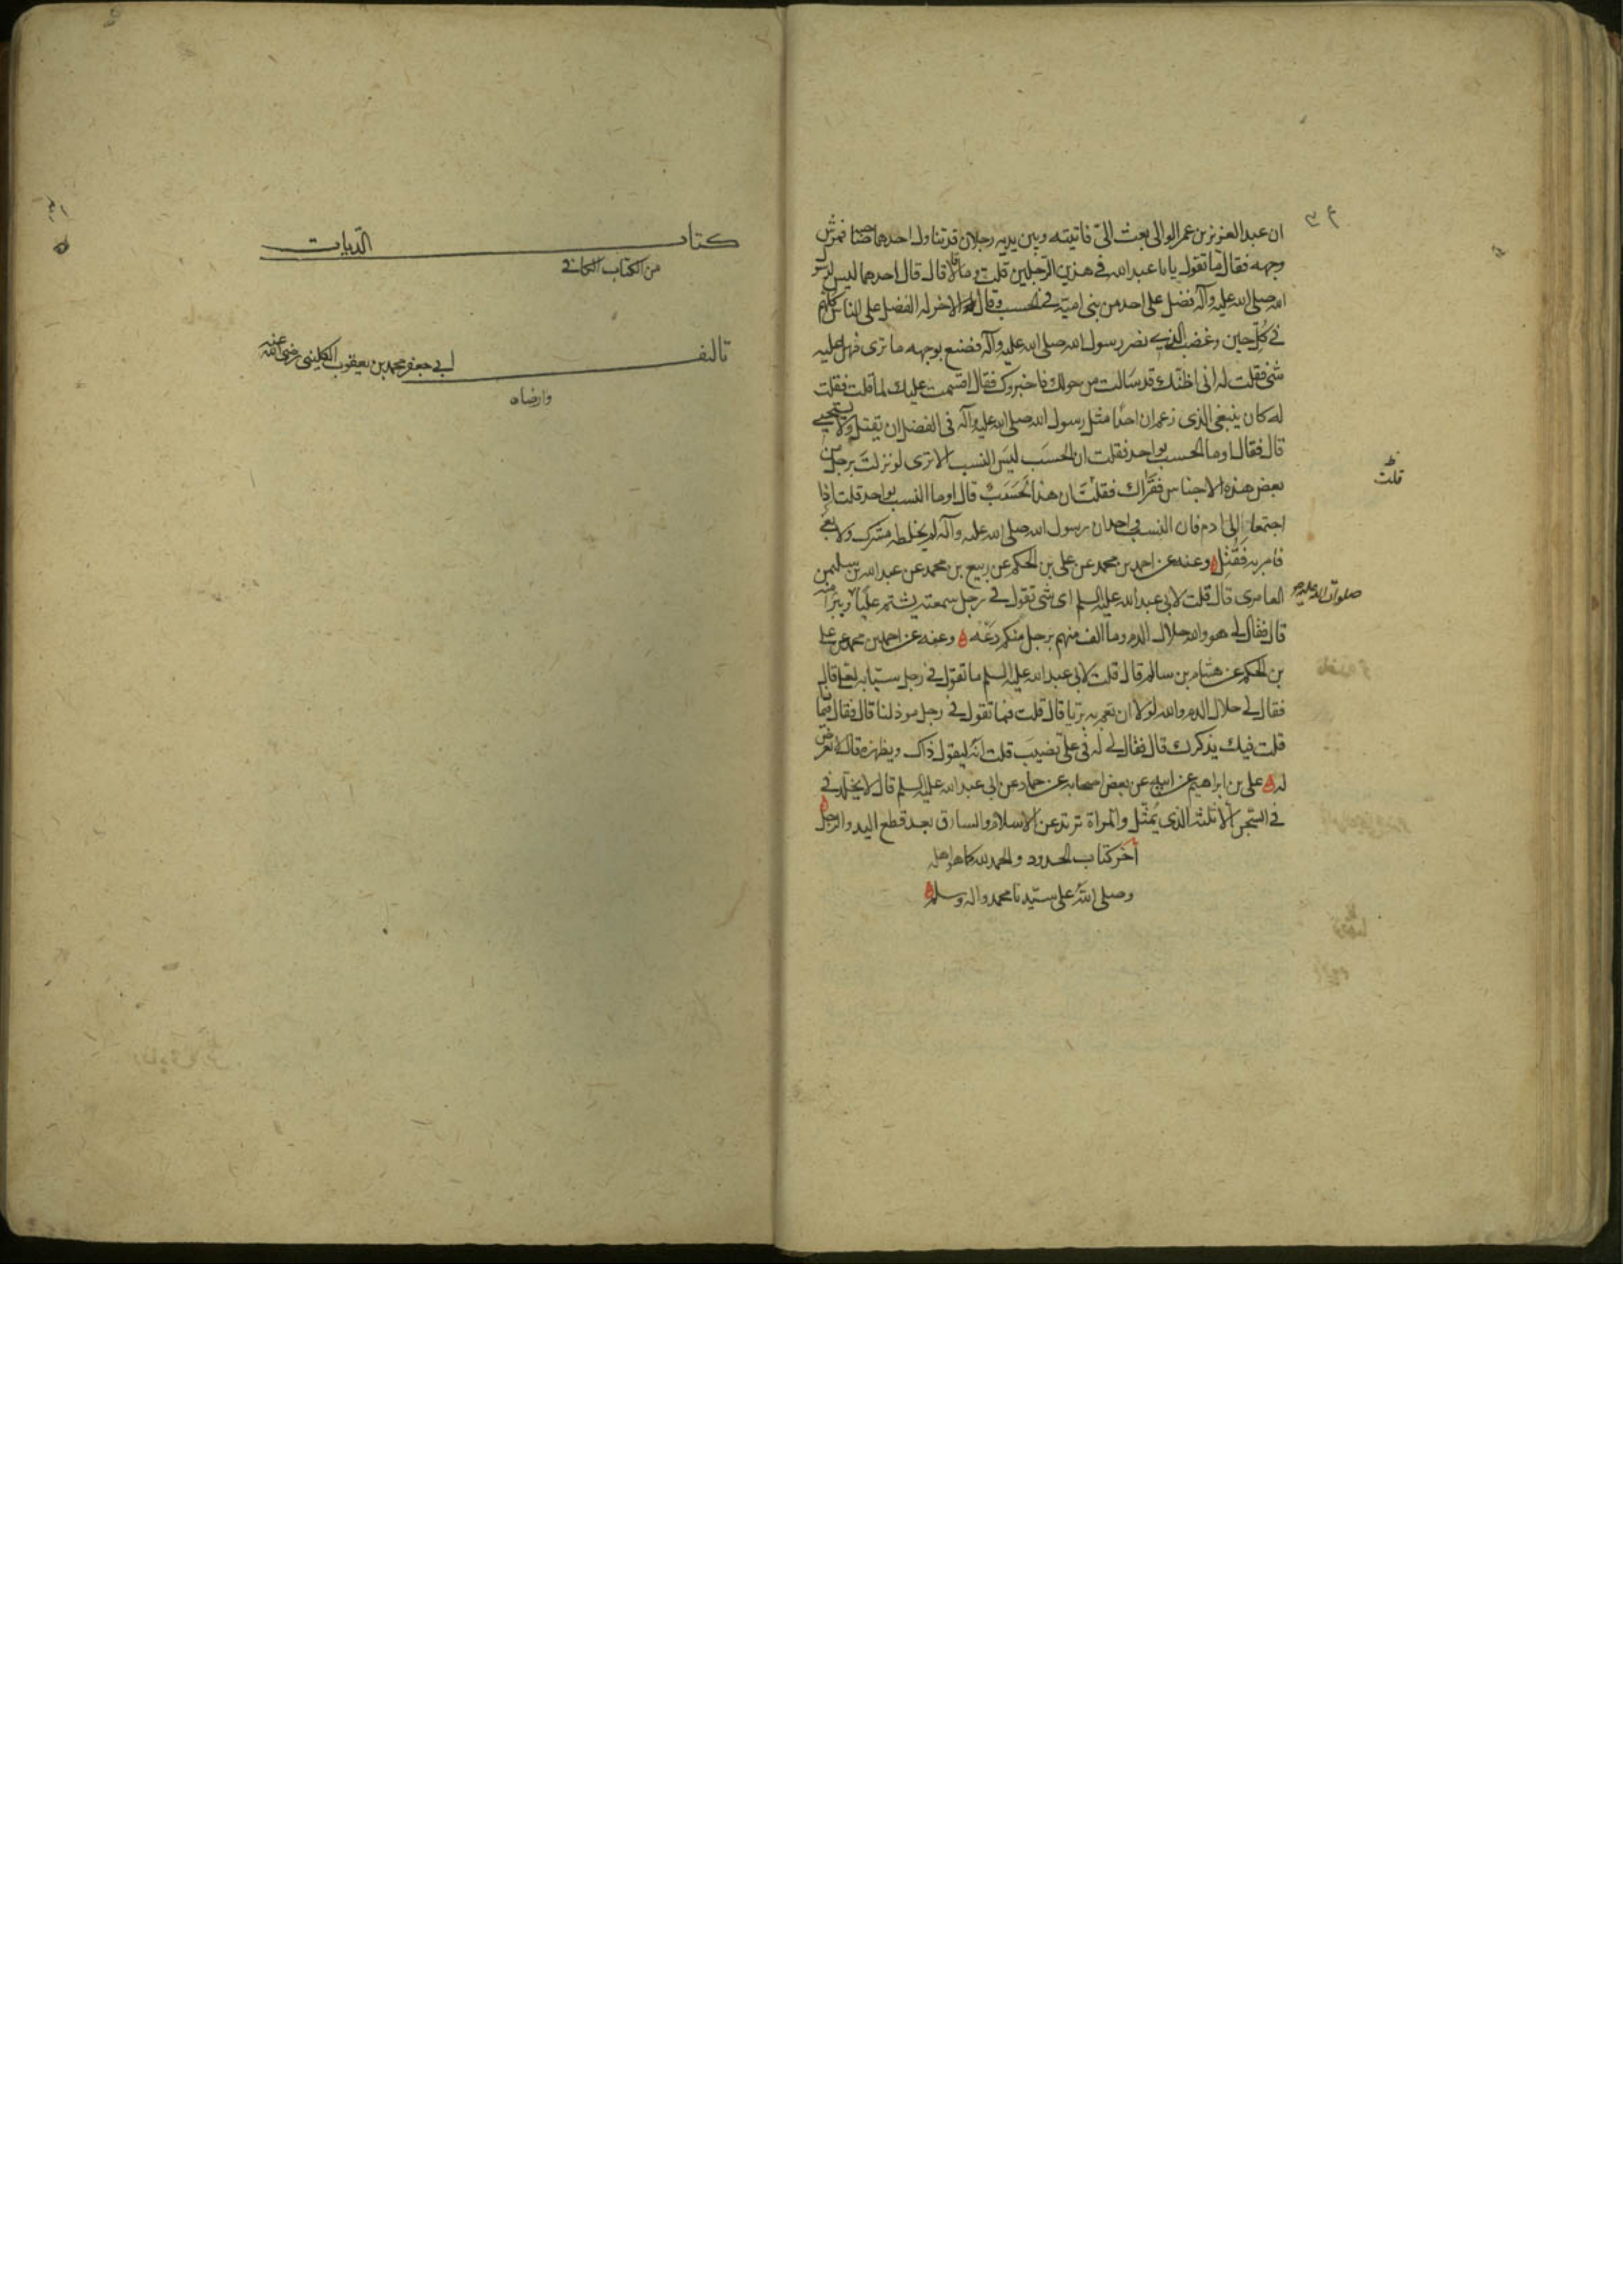 ان عبد العزيز بن عمر الوالى بعث الىّ فاتيته وبين يديه رجلان قد تناول احدهما صاحبه فمرش
وجهه فقال ما تقول يابا عبد الله فى هذين الرّجلين قلت وما قالا قال قال احدهما ليس لرسو
الله صلى الله عليه وآله فضل على احد من بنى اميّة فى الحسب وقال الاخر له الفضل على الناس كلهم
فى كلّ حين وغضب الذى نصر رسول الله صلى الله عليه وآله فصنع بوجهه ما ترى فهل عليه
شئ فقلت له انى اظنّك قد سالت من حولك فاخبروك فقال اقسمت عليك لما قلت فقلت
له كان ينبغى للذى زعم ان احدًا مثل رسول الله صلى الله عليه وآله فى الفضل ان يقتل ولا يستحيى
قال فقال اوما الحسب بواحد فقلت ان الحسَب ليسَ النسب الا ترى لو نزلتَ برجل من
بعض هذه الاجناس فقَرَاك فقلتَ ان هذا لَحَسَبٌ قال اوما النسب بواحد قلت اذا
اجتمعا الى ادم فان النسب واحد ان رسول الله صلى الله عليه وآله لم يخلطه شرك ولا بغى
فامر به فقُتِل وعنه عن احمد بن محمد عن على بن الحكم عن ربيع بن محمد عن عبد الله بن سليمن
العامرى قال قلت لابى عبد الله عليه السلم اى شئ تقول فى رجل سمعته يشتم عليًّا ويبرأ منه
قال فقال لى هو والله حلال الدم وما الف منهم برجل منكم دَعْه وعنه عن احمد بن محمد عن على
بن الحكم عن هشام بن سالم قال قلت لابى عبد الله عليه السلم ما تقول فى رجل سبّابه لعلى قال
فقال لى حلال الدم والله لولا ان تعم به بريا قال قلت فما تقول فى رجل موذ لنا قال فقال فيما
قلت فيك يذكرك قال فقال لى له فى علىّ نصيبَ قلت انّه ليقول ذاك ويظهره قال لا تعرض
له على بن ابراهيم عن ابيه عن بعض اصحابه عن حماد عن ابى عبد الله عليه السلم قال لا يخلّد فى
فى السّجن الا ثلثه الذى يُمثّل والمراة ترتد عن الاسلام والسارق بعد قطع اليد والرجل
آخر كتاب الحدود والحمد لله كما هو اهله
وصلى اللهُ على سيّدنا محمد واله وسلم
قلت
صلوات الله عليه
كتاب الدّيات
من الكتاب الكافى
تاليف ابى جعفر محمد بن يعقوب الكلينى رضى الله عنه
وارضاه